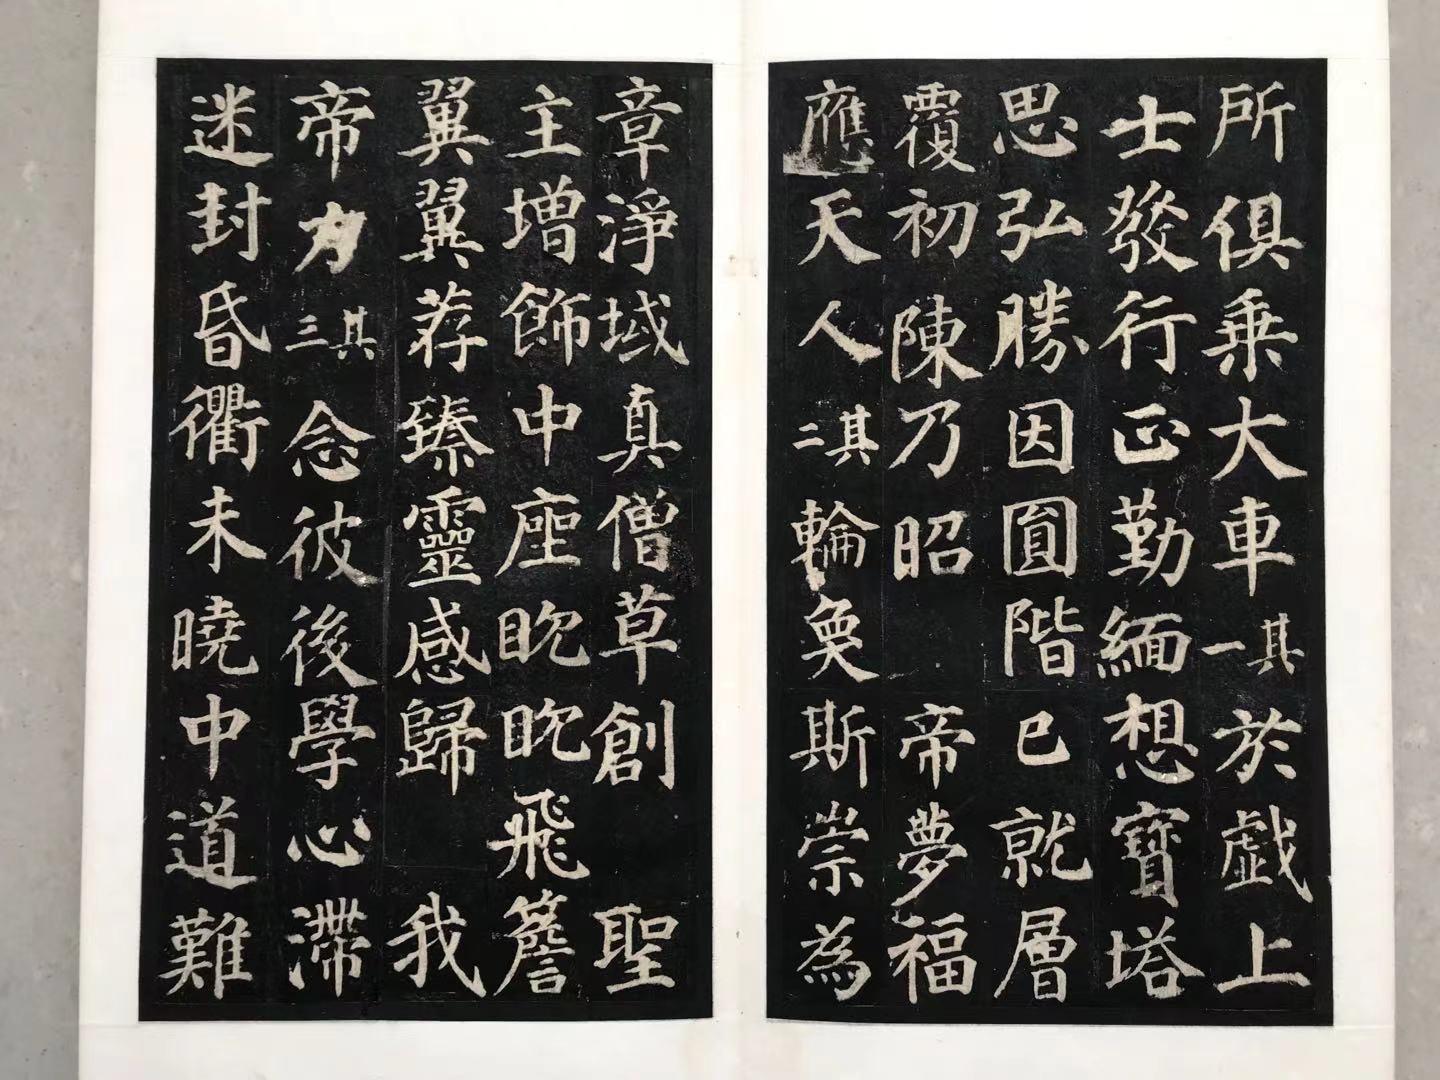 所俱乗大車其一於戯上
士發行正勤緬想寶塔
思弘勝因圓階已就層
覆初陳乃昭帝夢福
應天人其二輪奐斯崇為
章淨域真僧草創聖
主增飾中座眈眈飛簷
翼翼荐臻靈感歸我
帝力其三念彼後學心滯
迷封昏衢未曉中道難